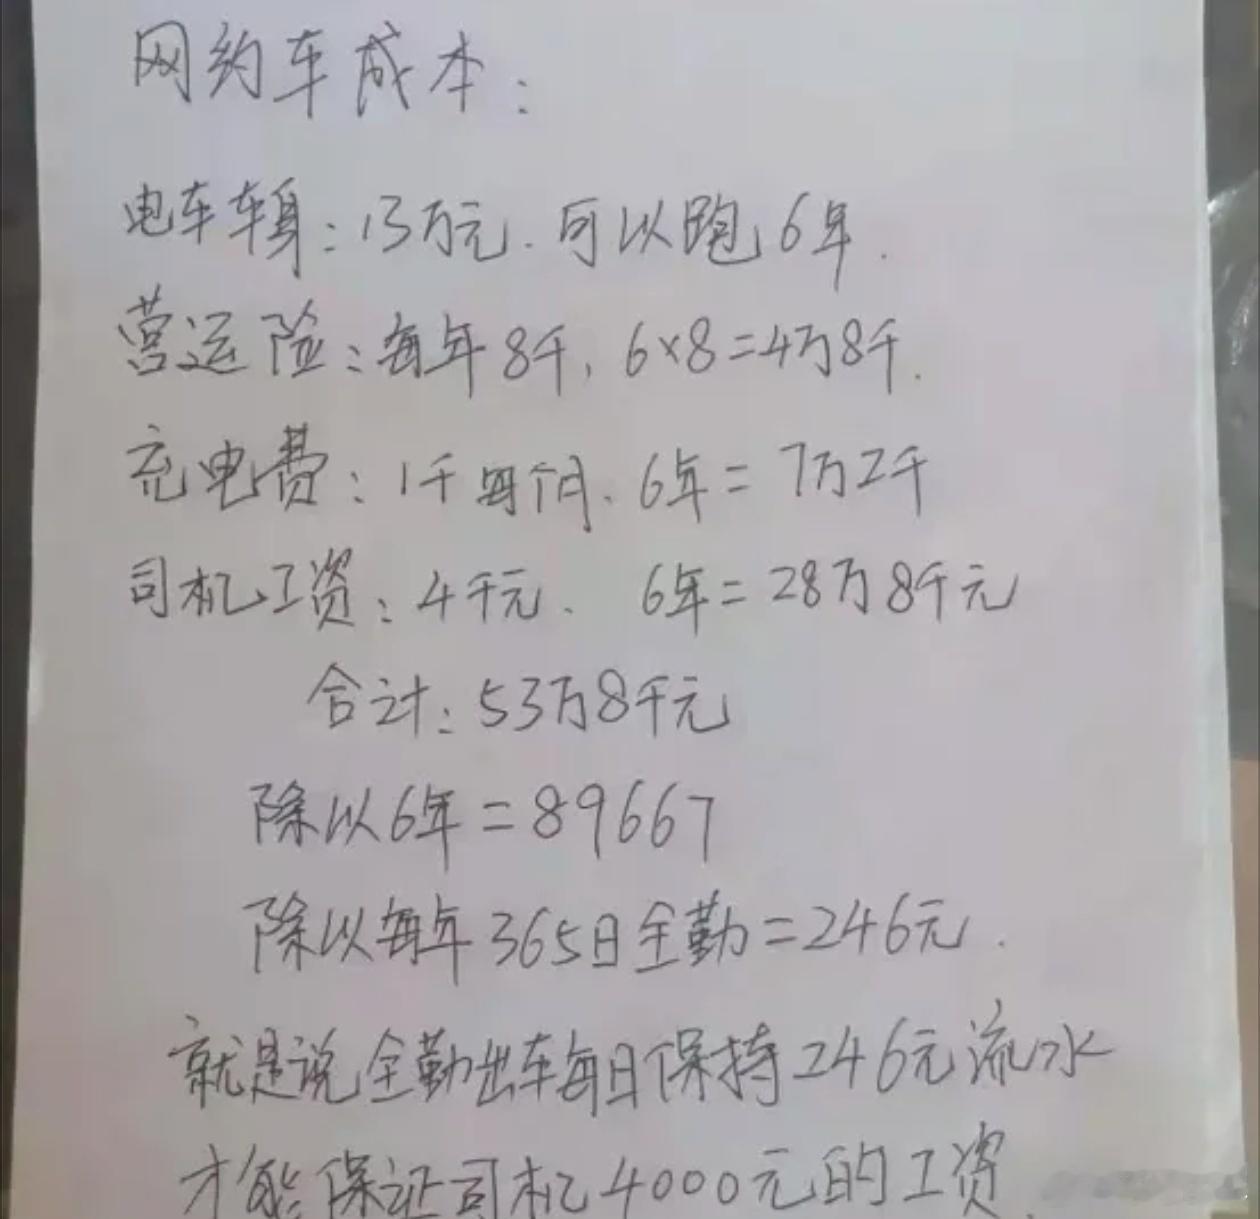 网约车成本:
电车车身:13万元.可以跑6年.
营运险:每年8千,6×8=4万8千.
充电费:1千每个月、6年=7万2千
司机工资:4千元、 6年=28万8千元
合计:53万8千元
除以6年=89667
除以每年365日全勤=246元.
就是说全勤出车每日保持246元流水
才能保证司机4000元的工资